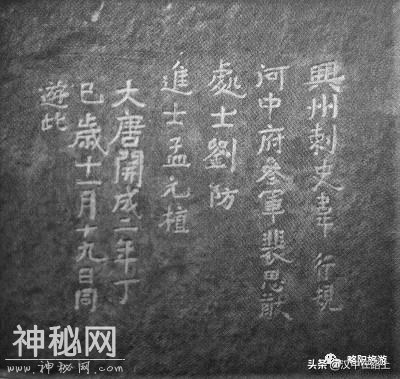 興州刺史韋行規
河中府參軍裴思猷
處士劉防
進士孟元植
大唐開成二年丁
巳歲十一月十九日同
遊此
神秘网
www.神秘网.com
略阳旅游